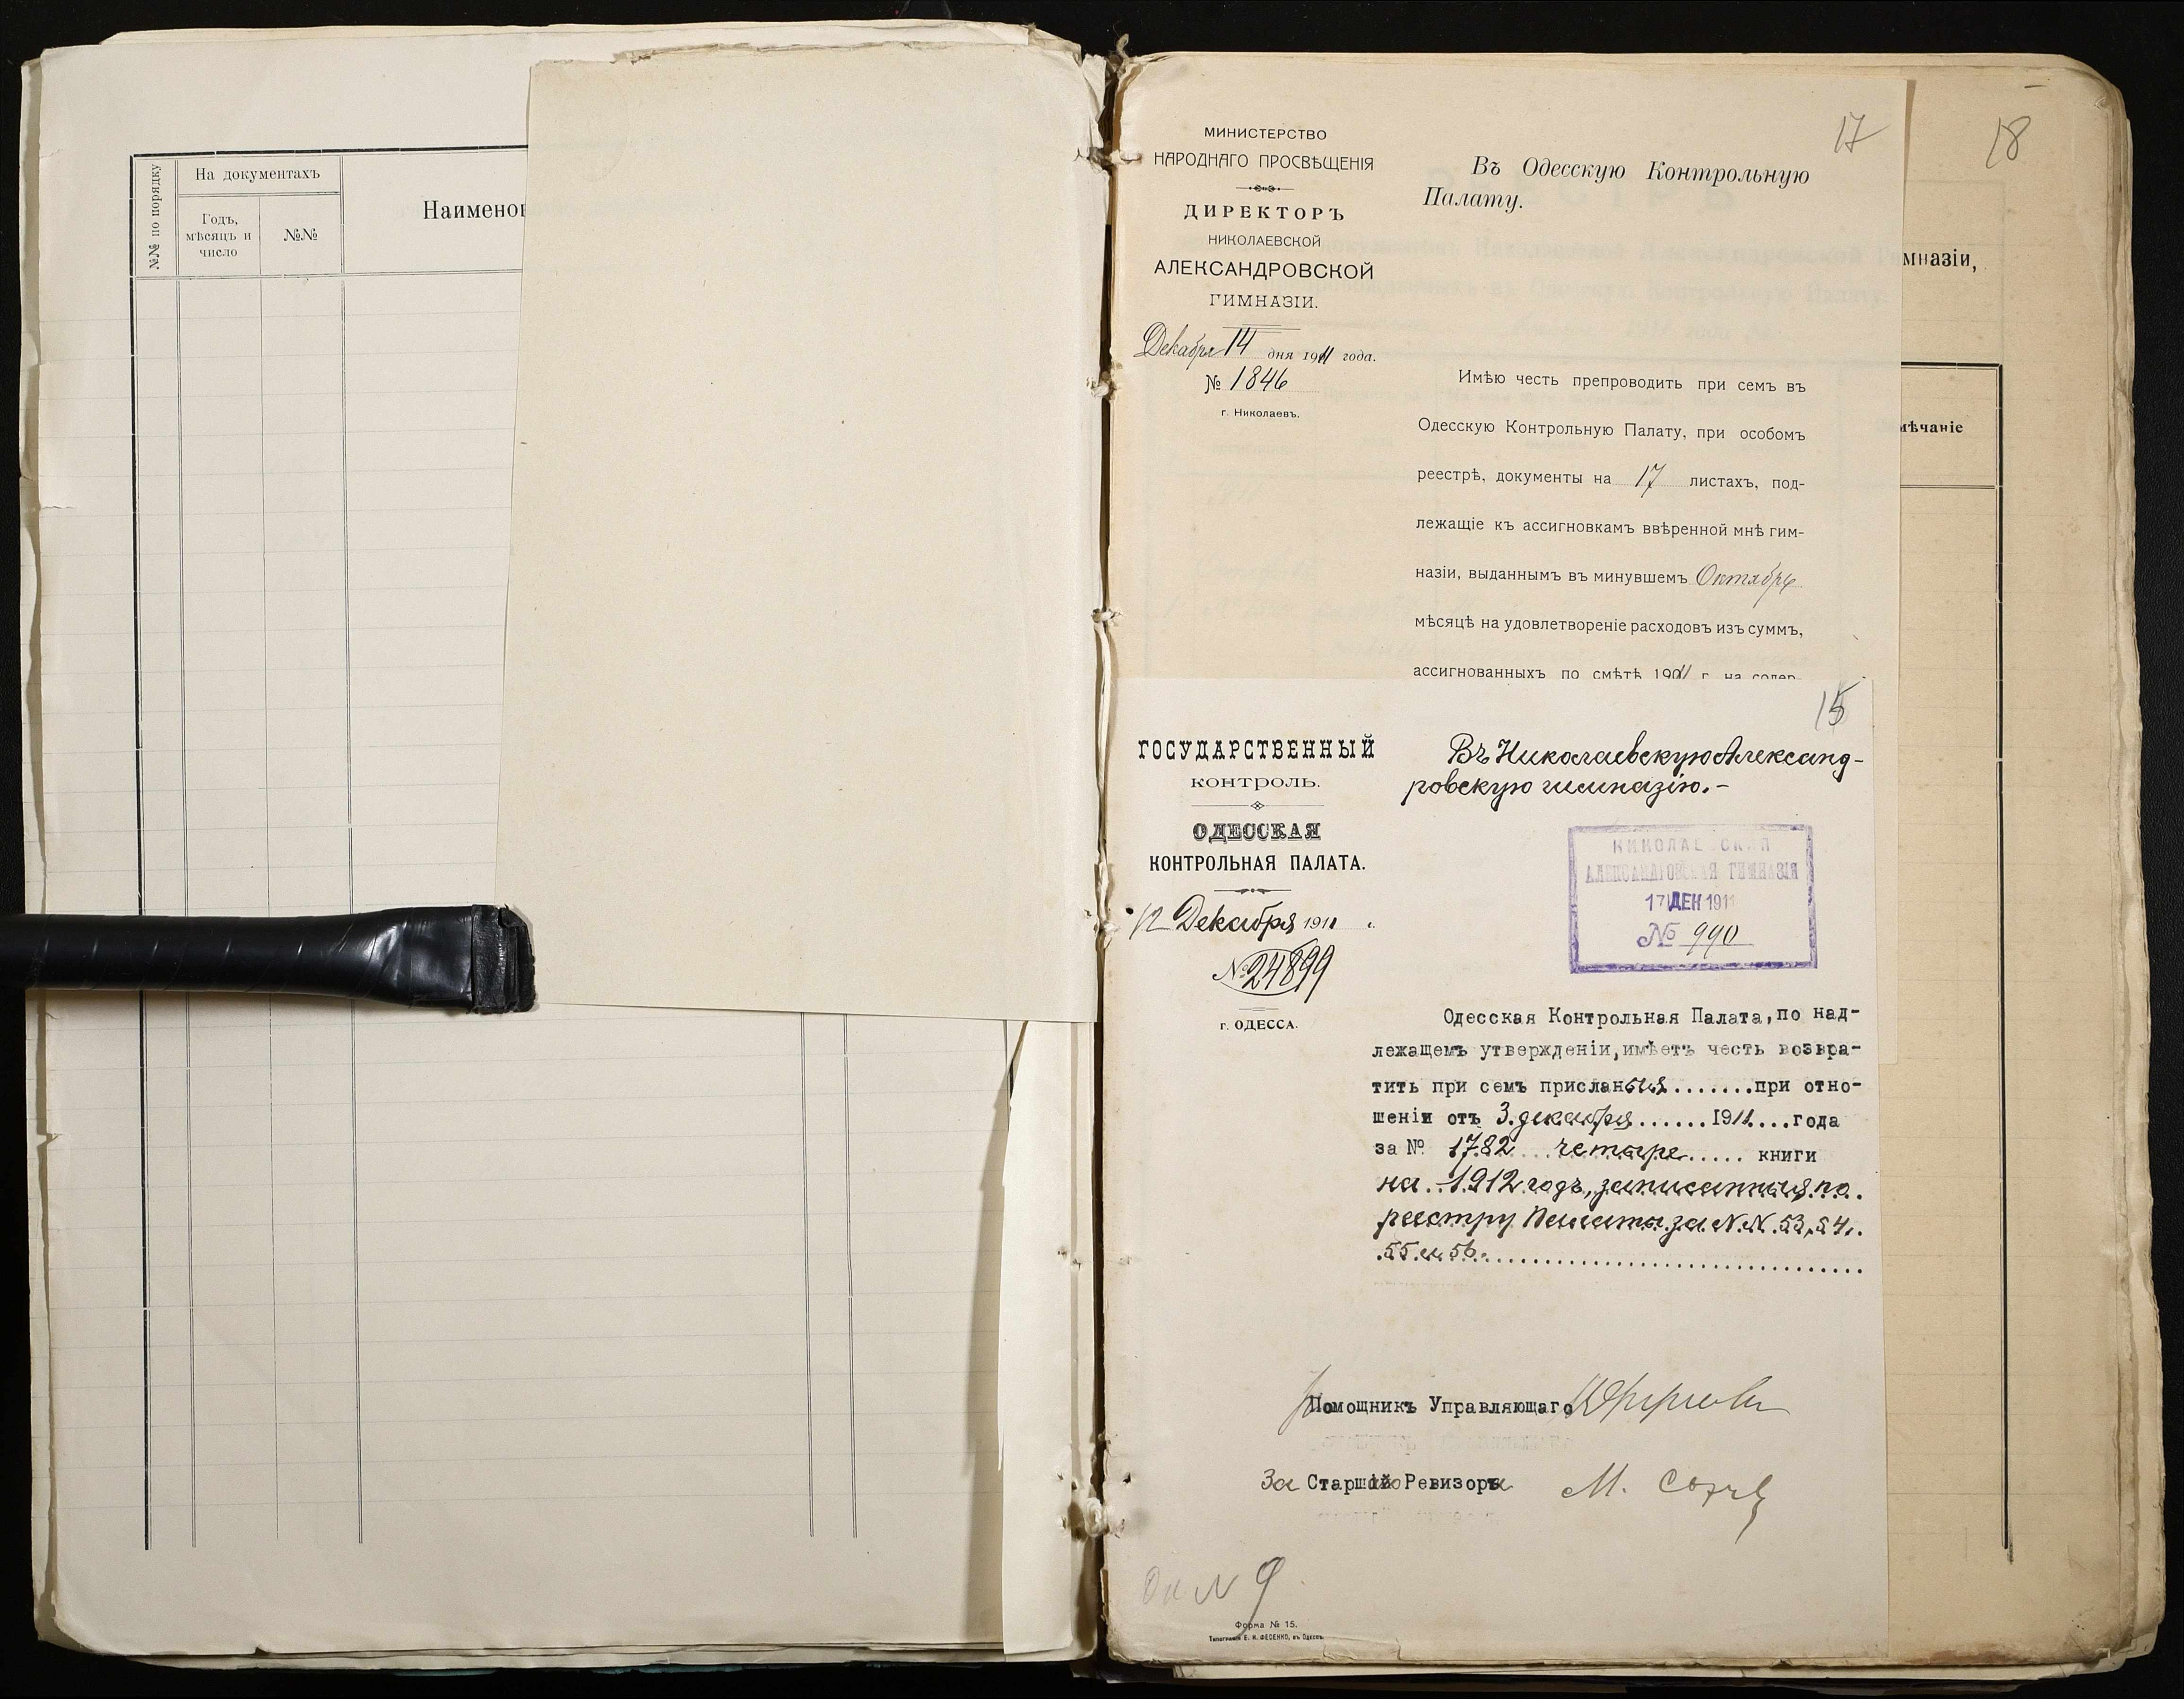 №№ по порядку
На документахъ
Годъ,
мѣсяцъ и
число
№№
Наименов
17
18
МИНИСТЕРСТВО
НАРОДНАГО ПРОСВѢЩЕНІЯ
ДИРЕКТОРЪ
НИКОЛАЕВСКОЙ
АЛЕКСАНДРОВСКОЙ
ГИМНАЗІИ.
Декабря 14 дня 1911 года.
№ 1846
г. Николаевъ.
Въ Одесскую Контрольную
Палату.
Имѣю честь препроводить при семъ въ
Одесскую Контрольную Палату, при особомъ
реестрѣ, документы на 17 листахъ, под-
лежащіе къ ассигновкамъ ввѣренной мнѣ гим-
назіи, выданнымъ въ минувшемъ Октябрѣ
мѣсяцѣ на удовлетвореніе расходовъ изъ суммъ,
ассигнованныхъ по смѣтѣ 1911 г. на содер-
мназіи,
мѣчаніе
15
ГОСУДАРСТВЕННЫЙ
КОНТРОЛЬ.
ОДЕССКАЯ
КОНТРОЛЬНАЯ ПАЛАТА.
12 Декабря 1911 г.
№ 24899
г. ОДЕССА.
Въ Николаевскую Александ-
ровскую гимназію.-
НИКОЛАЕВСКАЯ
АЛЕКСАНДРОВСКАЯ ГИМНАЗІЯ
17 ДЕК 1911
№ 990
Одесская Контрольная Палата, по над-
лежащемъ утвержденіи, имѣетъ честь возвра-
тить при семъ присланныя.......при отно-
шеніи отъ 3 декабря......1911....года
за № 1782 четыре..... книги
на 1912 годъ, записанныя по
реестру Палаты за N.N. 53, 54,
55 и 56.
Помощникъ Управляющаго
За Старшаго Ревизора
М.
№ 9
Форма № 15.
Типографія Е. И. ФЕСЕНКО, въ Одессѣ.